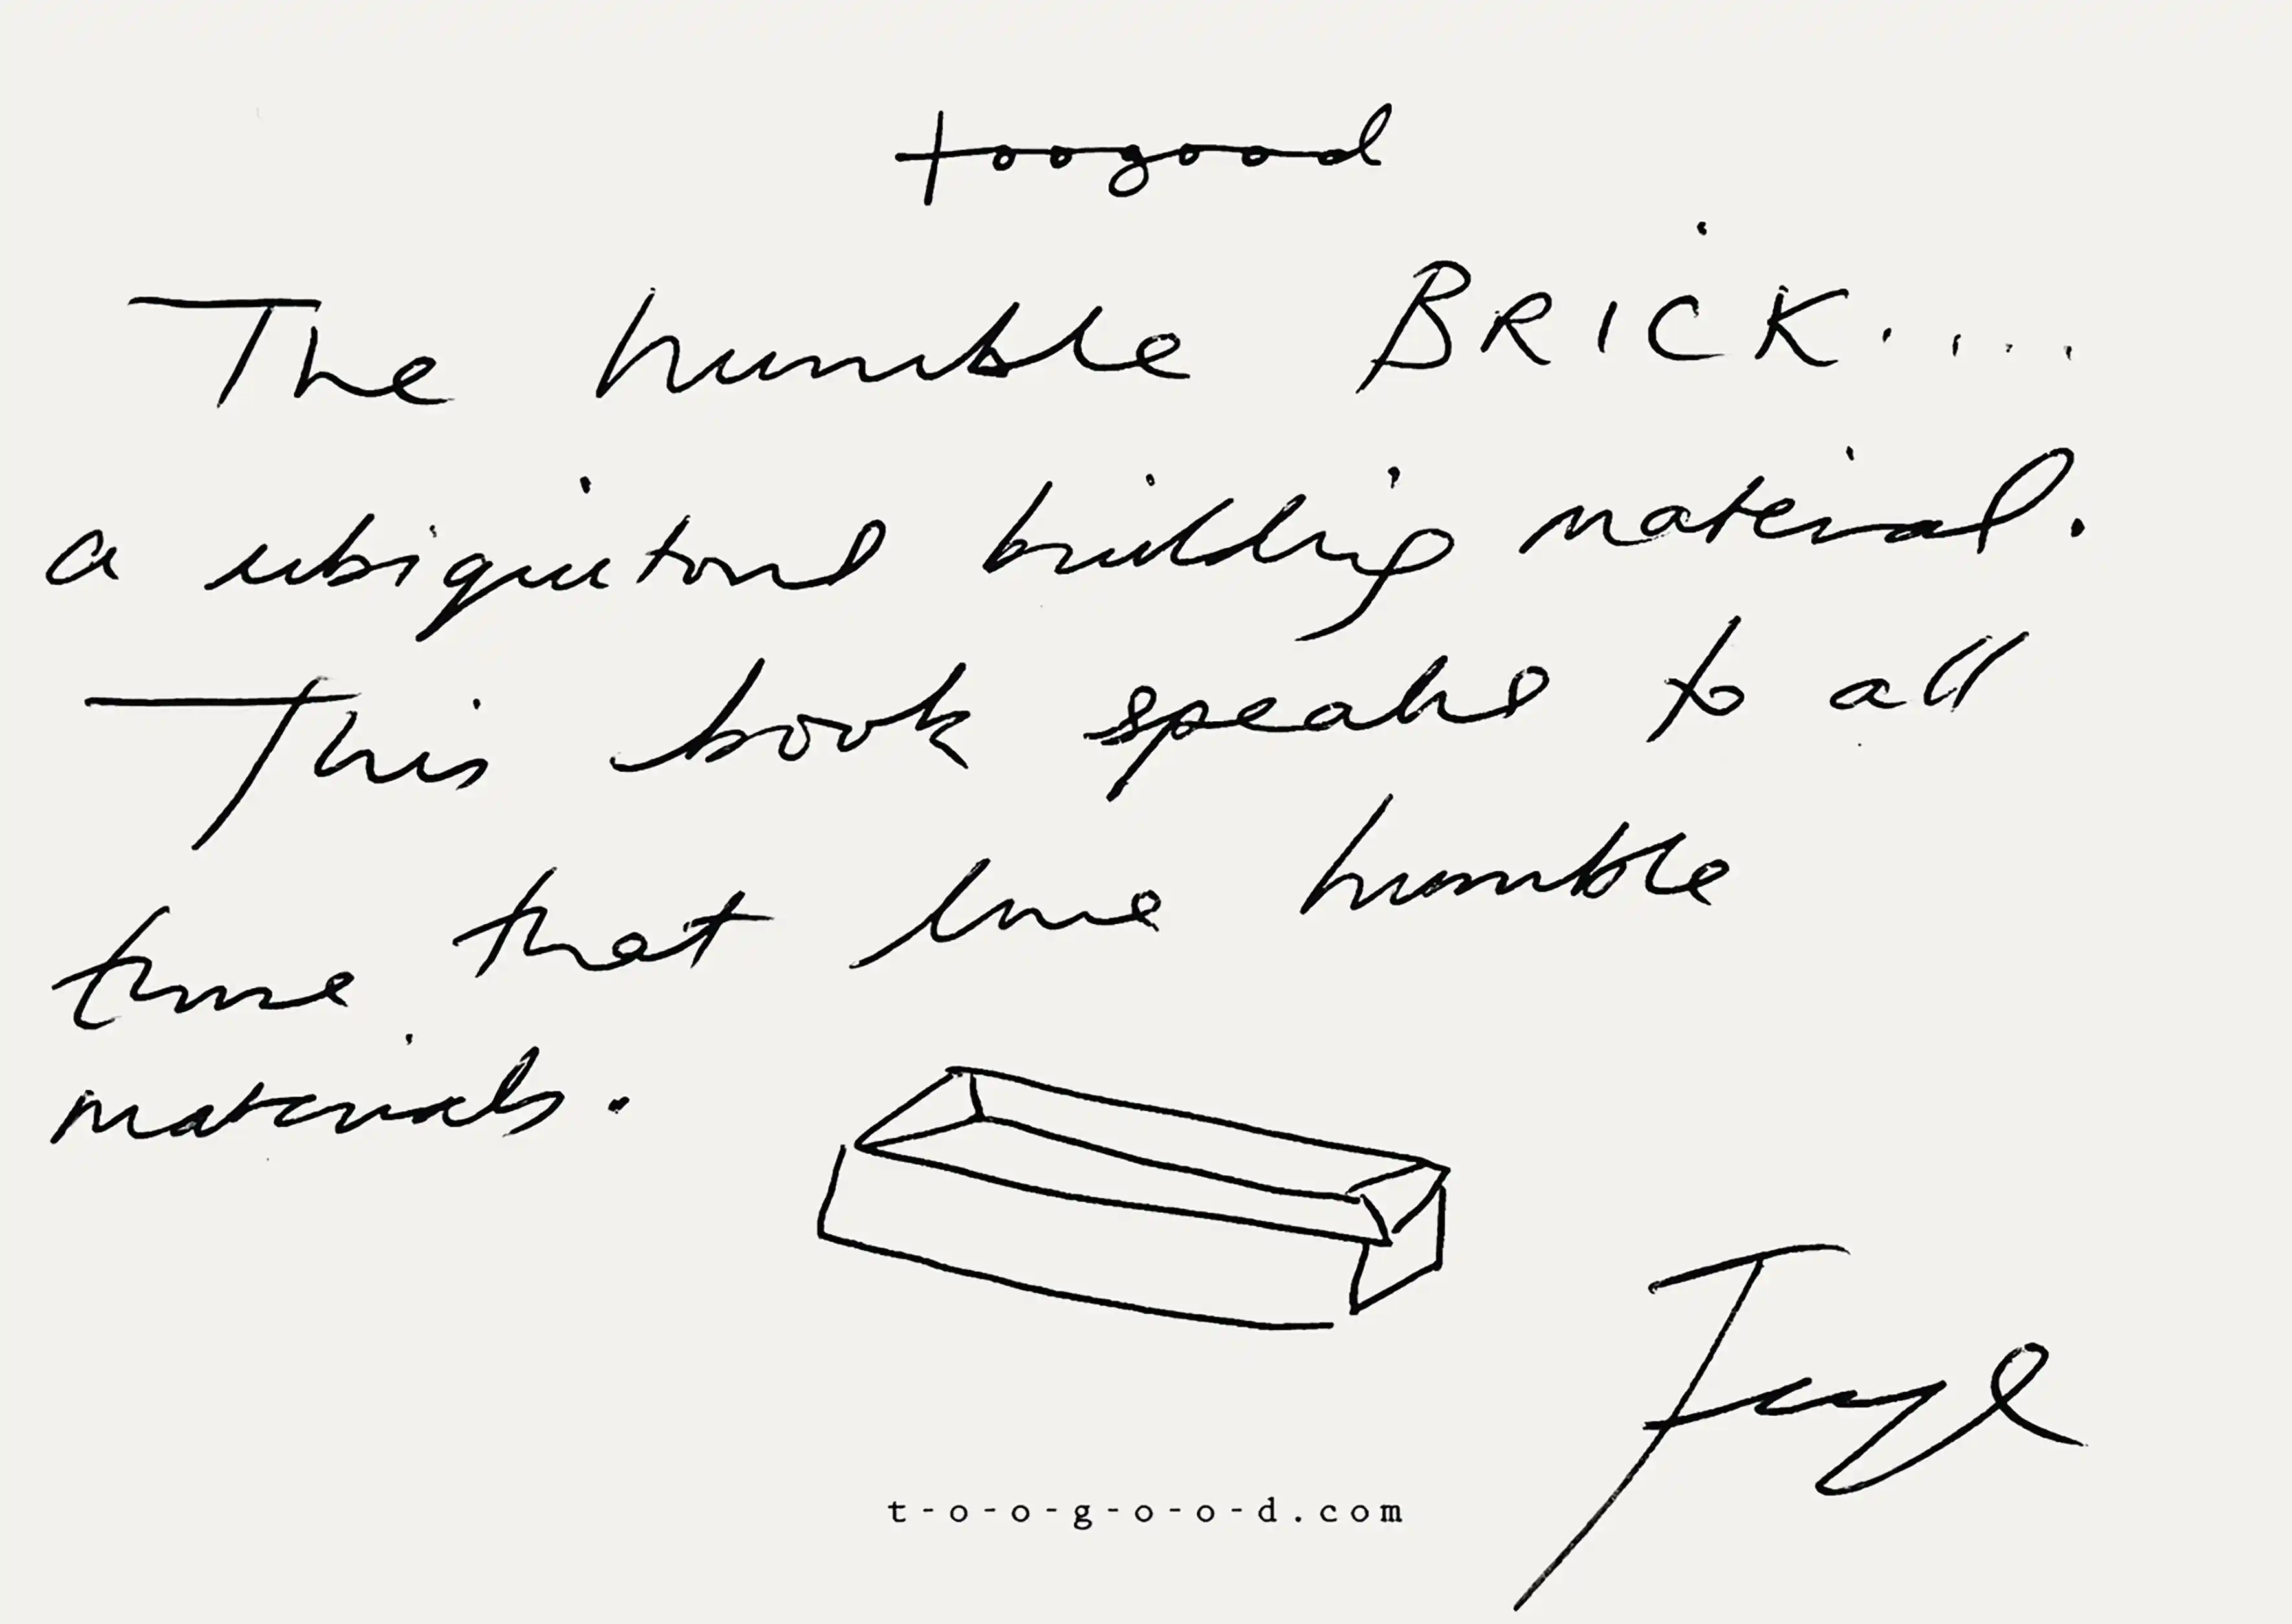 toogood
The humble BRICK....
a ubiquitous building material.
This book speaks to all
those that love humble
materials.
Faye
t-o-o-g-o-o-d.com